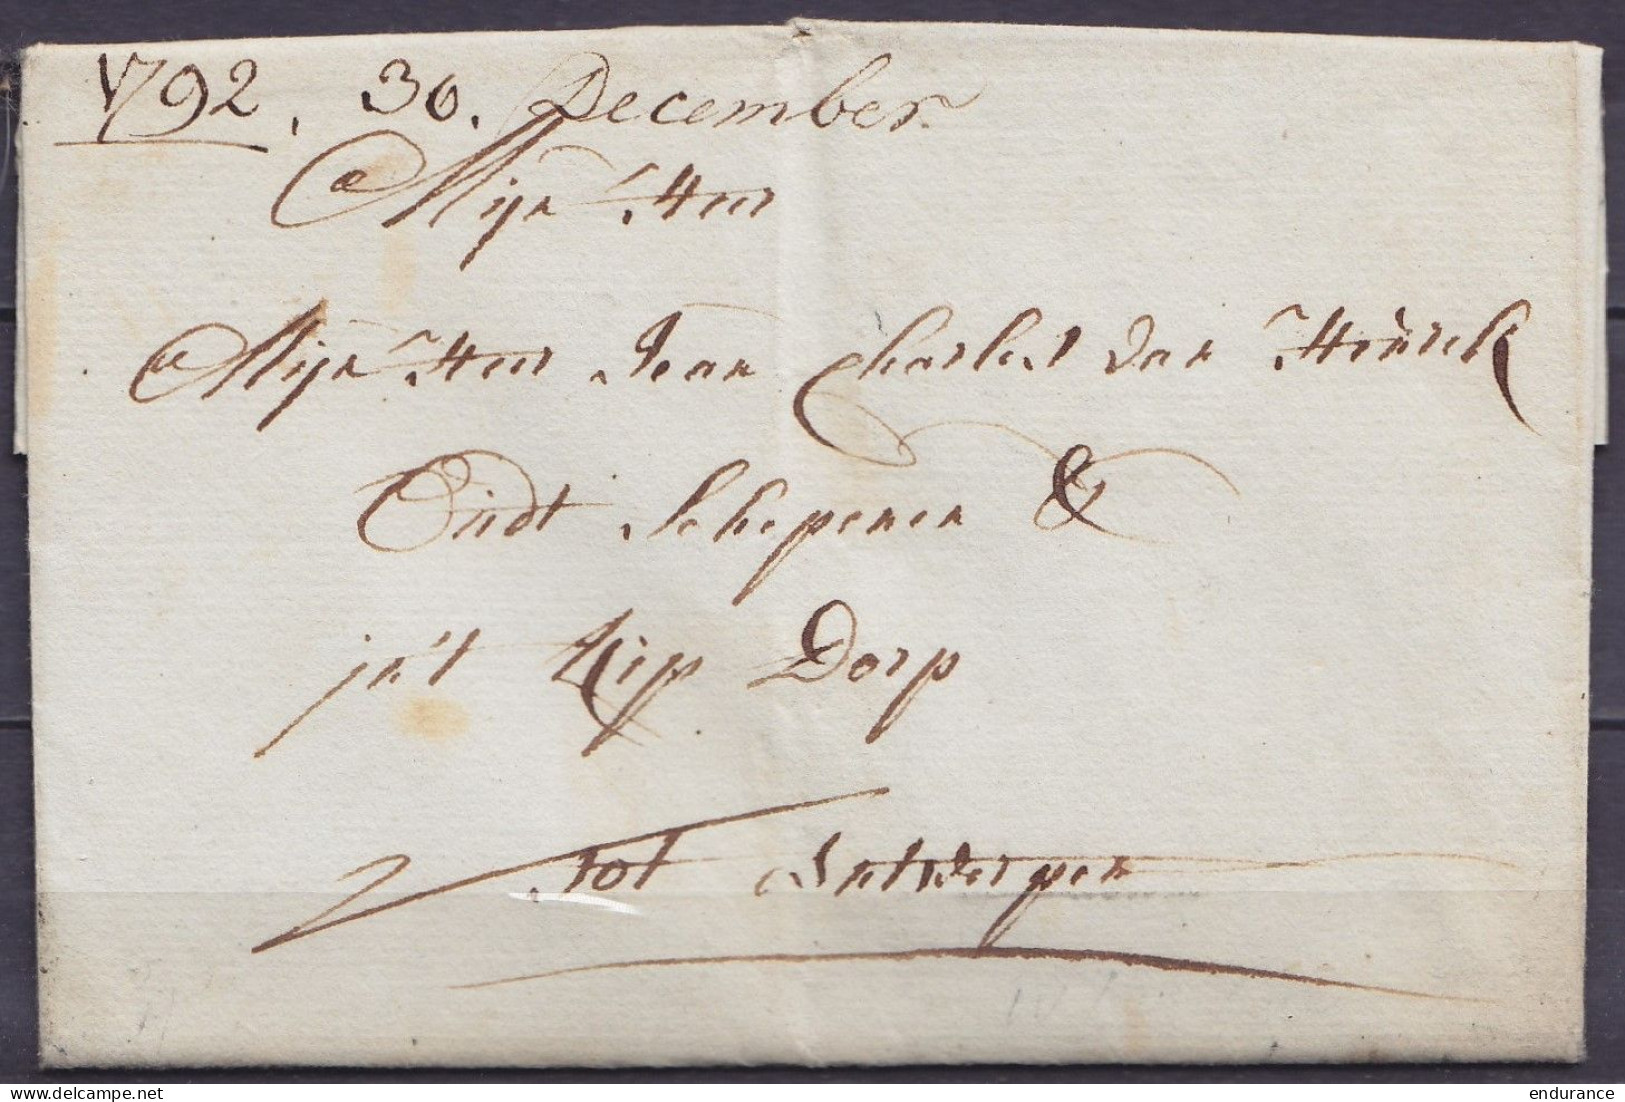 1792. 30. December.
Mijn Heer
Mijn Heer Jean Charles van
Oudt Schepenen &
in't Kip Dorp
tot Antwerpen
endurance